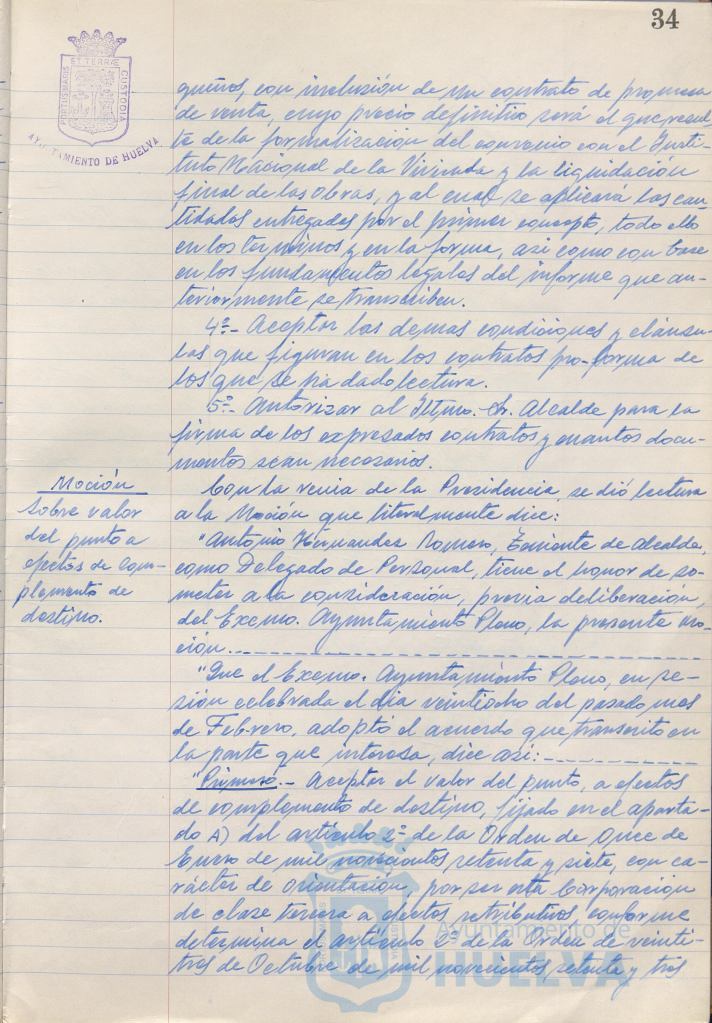 34
ET TERRÆ
PORTUS MARIS
CUSTODIA
AYUNTAMIENTO DE HUELVA
queños, con inclusión de un contrato de promesa
de venta, cuyo precio definitivo será el que resul-
te de la formalización del convenio con el Insti-
tuto Nacional de la Vivienda y la liquidación
final de las obras, y al cual se aplicará las can-
tidades entregadas por el primer concepto, todo ello
en los terminos y en la forma, asi como con base
en los fundamentos legales del informe que an-
teriormente se transcriben.
4º.- Aceptar las demas condiciones y cláusu-
las que figuran en los contratos pro-forma de
los que se ha dado lectura.
5º.- Autorizar al Iltmo. Sr. Alcalde para la
firma de los expresados contratos y cuantos docu-
mentos sean necesarios.
Moción
sobre valor
del punto a
efectos de com-
plemento de
destino.
Con la venia de la Presidencia, se dió lectura
a la Moción que literalmente dice:
"Antonio Hernandez Romero, Teniente de Alcalde,
como Delegado de Personal, tiene el honor de so-
meter a la consideración, previa deliberación,
del Excmo. Ayuntamiento Pleno, la presente mo-
ción.
"Que el Excmo. Ayuntamiento Pleno, en se-
sión celebrada el dia veintiocho del pasado mes
de Febrero, adoptó el acuerdo que transcrito en
la parte que interesa, dice asi:
"Primero.- Aceptar el valor del punto, a efectos
de complemento de destino, fijado en el aparta-
do A) del articulo 2º de la Orden de Once de
Enero de mil novecientos setenta y siete, con ca-
rácter de orientación, por ser esta Corporación
de clase tercera a efectos retributivos, conforme
determina el artículo 2º de la Orden de veinti-
tres de Octubre de mil novecientos setenta y tres
Ayuntamiento de
HUELVA